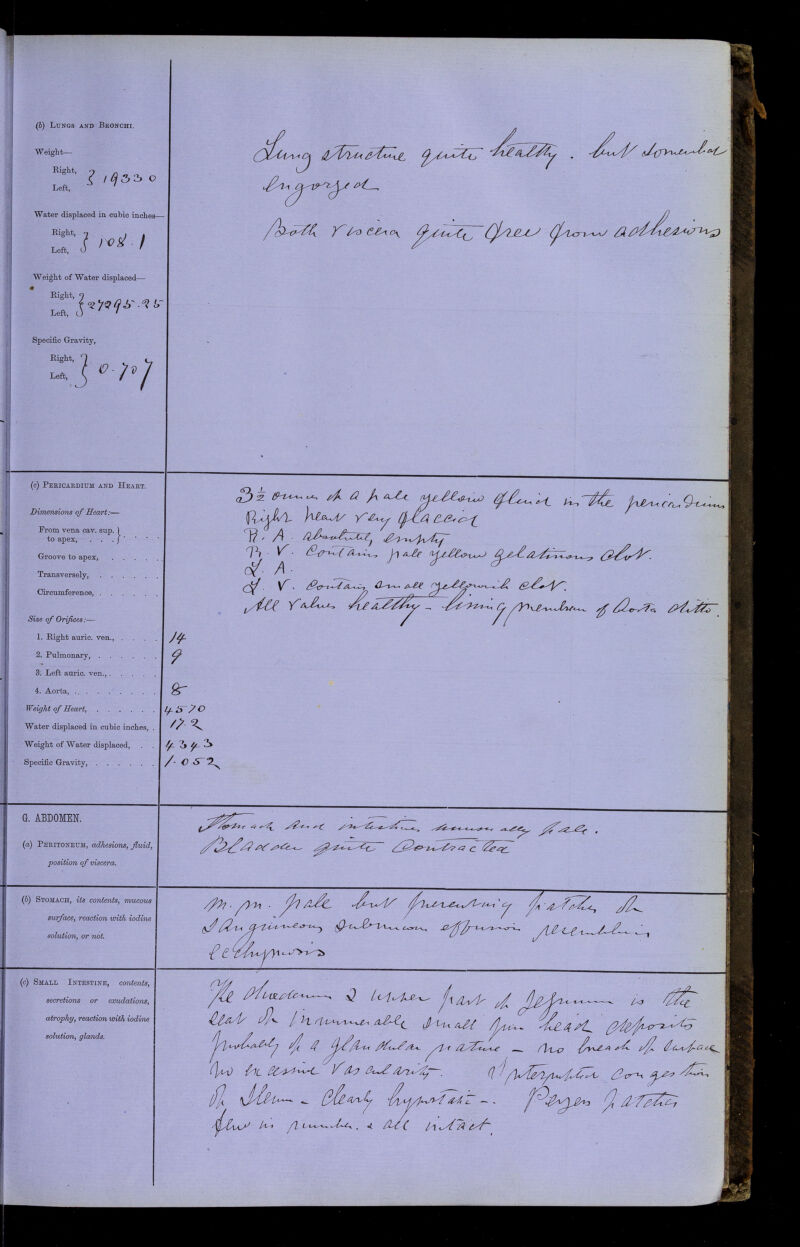 (b) LUNGS AND BRONCHI.
Weight—
Right,
Left, } 19330
Water displaced in cubic inches—
Right,
Left, } 108.1
Weight of Water displaced—
Right,
Left, } 27295.25
Specific Gravity,
Right,
Left, } 0.707
Lung structure quite healthy. but somewhat
engorged
Both viscera quite free from adhesions
(c) PERICARDIUM AND HEART.
Dimensions of Heart:—
From vena cav. sup. }
to apex, . . . }
Groove to apex,
Transversely,
Circumference,
Size of Orifices:—
1. Right auric. ven., 14
2. Pulmonary, 9
3. Left auric. ven.,
4. Aorta, 8
Weight of Heart, 4570
Water displaced in cubic inches, 17.2
Weight of Water displaced, 4343
Specific Gravity, 1.052
3½ ounces of a pale yellow fluid in the pericardium
Right heart very flaccid
R. A. absolutely empty
R. V. contains pale yellow gelatinous clot.
L. A.
L. V. contains small yellowish clot.
All valves healthy - lining membrane of Aorta ditto.
G. ABDOMEN.
(a) PERITONEUM, adhesions, fluid,
position of viscera.
Stomach and intestines unusually pale.
Bladder quite contracted
(b) STOMACH, its contents, mucous
surface, reaction with iodine
solution, or not.
m. m. pale but presenting patches of
sanguineous submucous effusion resembling
ecchymosis
(c) SMALL INTESTINE, contents,
secretions or exudations,
atrophy, reaction with iodine
solution, glands.
The duodenum & upper part of Jejunum is the
seat of innumerable small pin head deposits
probably of a glandular nature — no breach of surface
no excessive vascularity. Interrupted congestion
of Ileum - clearly hypostatic -. Peyers patches
few in number. & all intact.